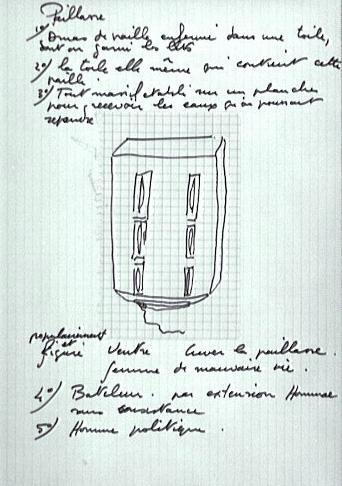 Paillasse
1º/ Amas de paille enfermé dans une toile,
dont on garni les lits
2º/ la toile elle même qui contient cette
paille
3º/ Tout massif établi sur un plancher
pour recevoir les eaux qu'on pourrait
répendre
populairement
et
figuré Ventre Crever la paillasse.
femme de mauvaise vie.
4º/ Bateleur. par extension Homme
sans consistance
5º/ Homme politique.